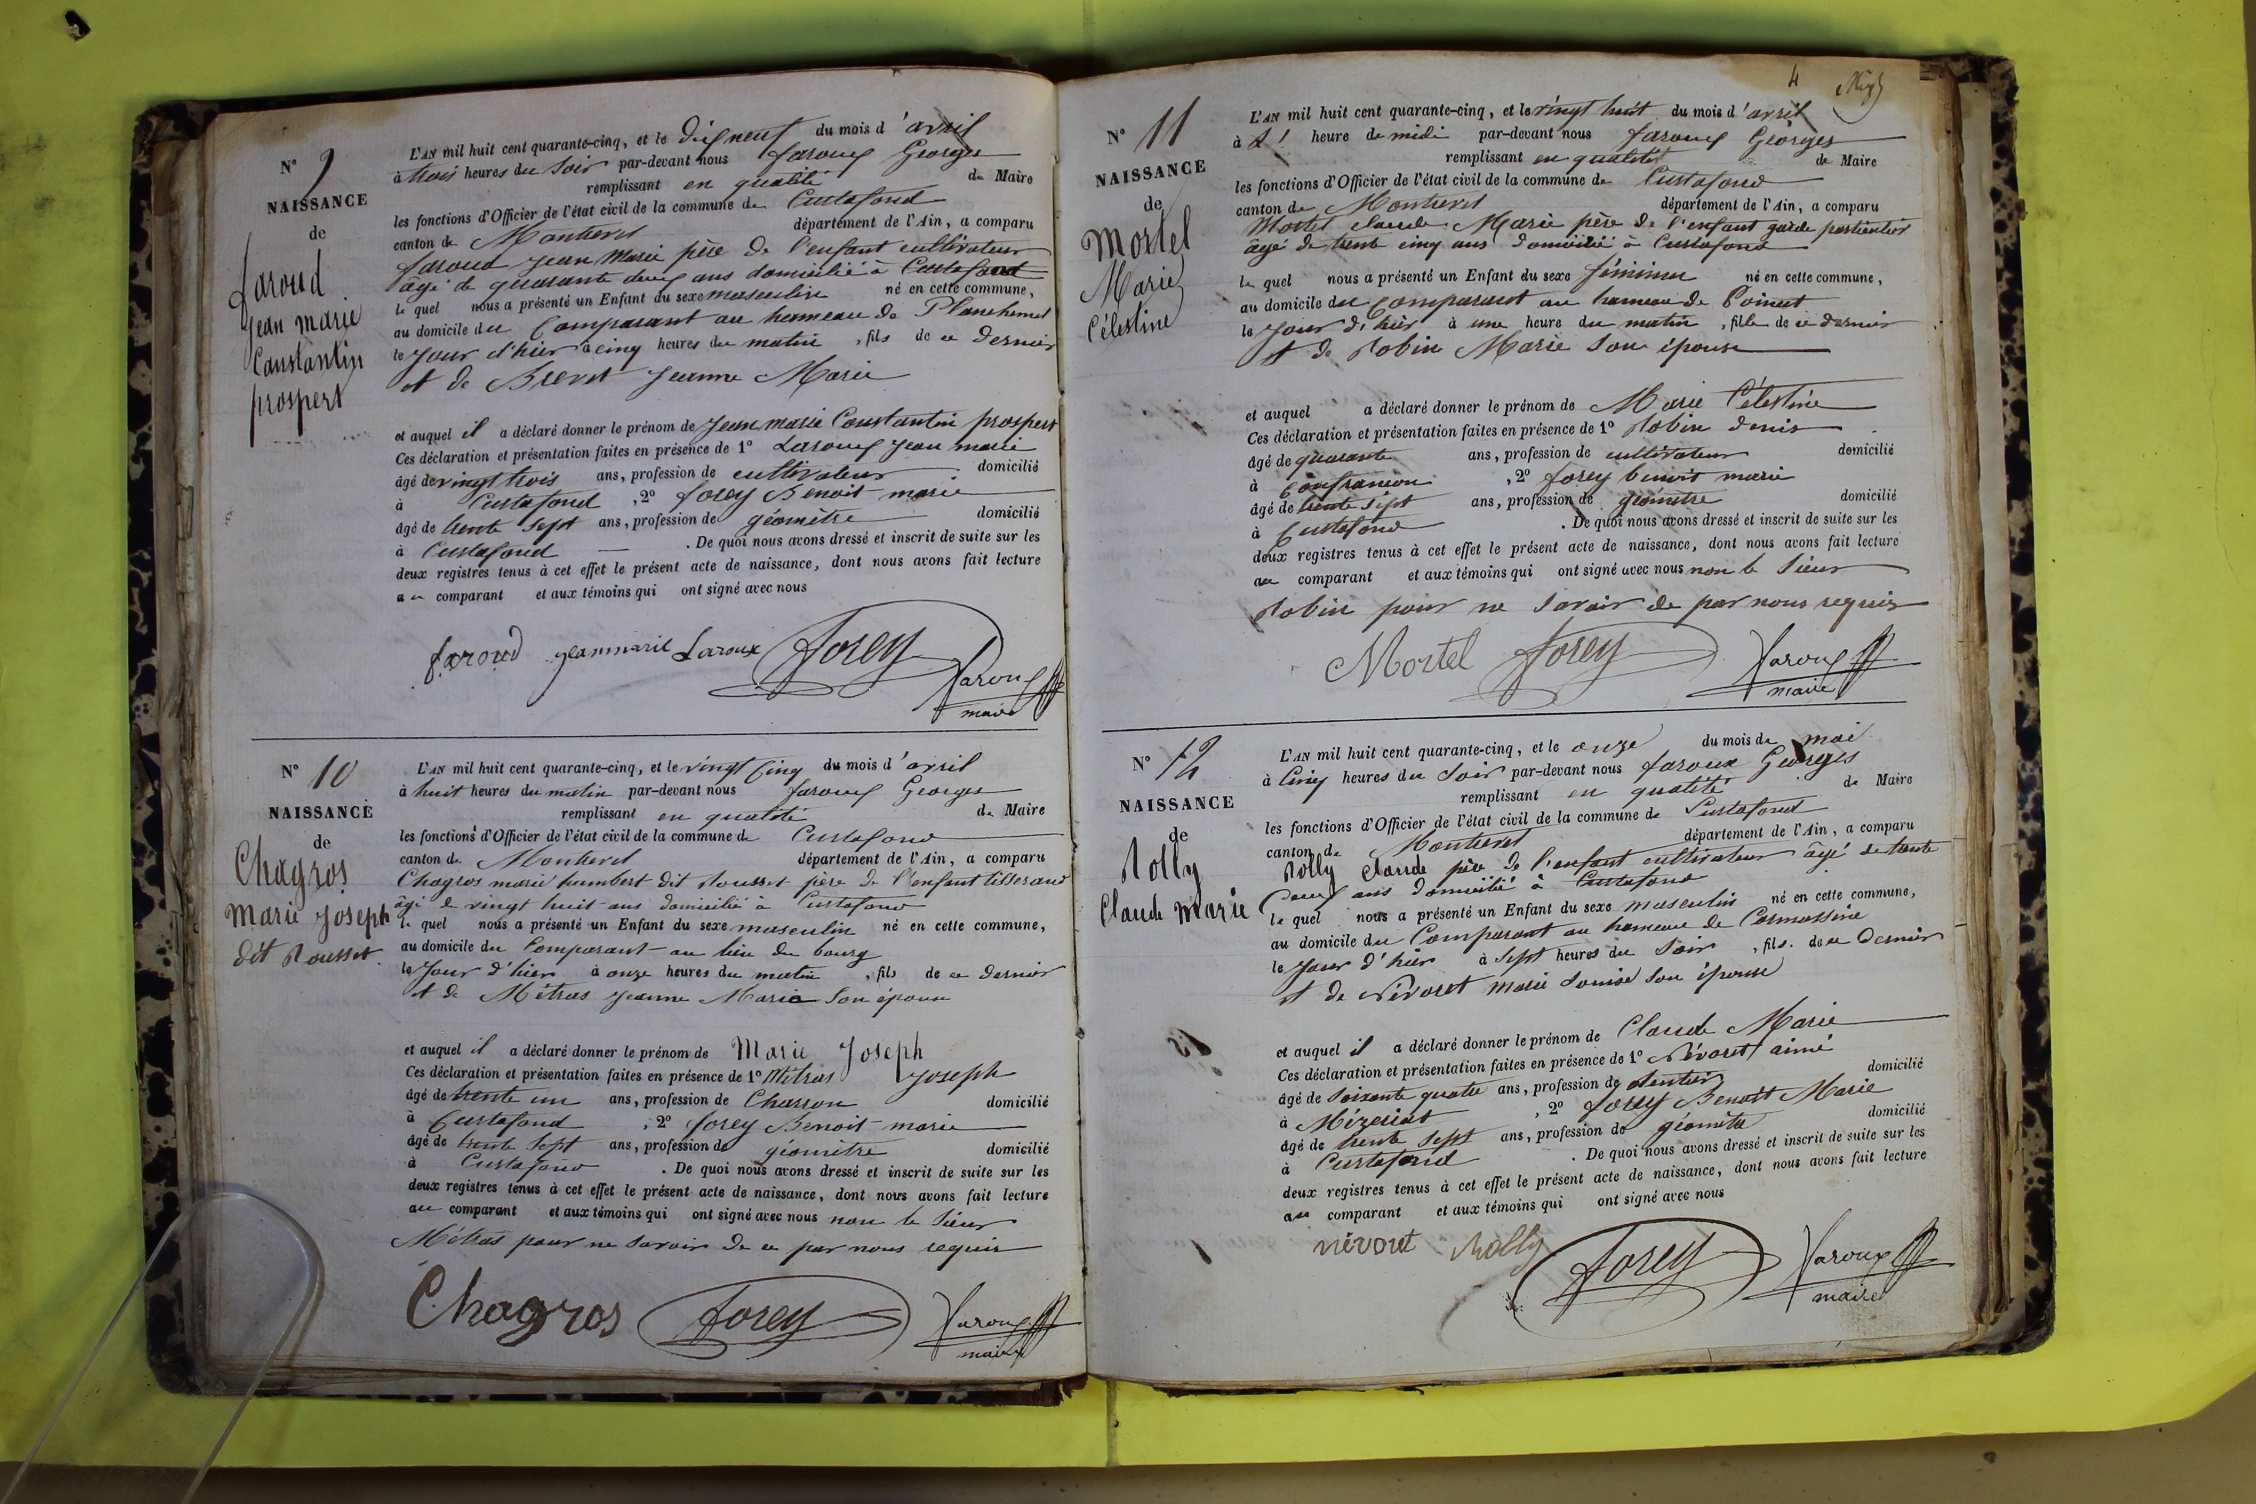 N° 9
NAISSANCE
de
faroud
Jean marie
Constantin
prospert
L'AN mil huit cent quarante-cinq, et le dix neuf du mois d'avril
à trois heures du soir par-devant nous faroux Georges
remplissant en qualité de Maire
les fonctions d'Officier de l'état civil de la commune de Curtafond
canton de Montrevel département de l'Ain, a comparu
faroud Jean Marie père de l'enfant cultivateur
âgé de quarante deux ans domicilié à Curtafond
le quel nous a présenté un Enfant du sexe masculin né en cette commune,
au domicile du Comparant au hameau de Planchemel
le Jour d'hier à cinq heures du matin, fils de ce dernier
et de Brevet Jeanne Marie
et auquel il a déclaré donner le prénom de Jean marie Constantin prospert
Ces déclaration et présentation faites en présence de 1° Laroux Jean marie
âgé de vingt trois ans, profession de cultivateur domicilié
à Curtafond, 2° forey Benoit marie
âgé de trente sept ans, profession de géomètre domicilié
à Curtafond . De quoi nous avons dressé et inscrit de suite sur les
deux registres tenus à cet effet le présent acte de naissance, dont nous avons fait lecture
au comparant et aux témoins qui ont signé avec nous
faroud jeanmarie Laroux forey
faroux
maire
N° 10
NAISSANCE
de
Chagros
Marie Joseph
dit Rousset
L'AN mil huit cent quarante-cinq, et le vingt Cinq du mois d'avril
à huit heures du matin par-devant nous faroux Georges
remplissant en qualité de Maire
les fonctions d'Officier de l'état civil de la commune de Curtafond
canton de Montrevel département de l'Ain, a comparu
Chagros marie humbert dit Rousset père de l'enfant tisserand
âgé de vingt huit ans domicilié à Curtafond
le quel nous a présenté un Enfant du sexe masculin né en cette commune,
au domicile du Comparant au lieu du bourg
le Jour d'hier à onze heures du matin, fils de ce dernier
et de Mitras Jeanne Marie Son épouse
et auquel il a déclaré donner le prénom de Marie Joseph
Ces déclaration et présentation faites en présence de 1° Mitras Joseph
âgé de trente un ans, profession de Charron domicilié
à Curtafond, 2° forey Benoit marie
âgé de trente sept ans, profession de géomètre domicilié
à Curtafond . De quoi nous avons dressé et inscrit de suite sur les
deux registres tenus à cet effet le présent acte de naissance, dont nous avons fait lecture
au comparant et aux témoins qui ont signé avec nous non le Sieur
Mitras pour ne Savoir de ce par nous requis
Chagros forey faroux
maire
4
N° 11
NAISSANCE
de
Mortel
Marie
Célestine
L'AN mil huit cent quarante-cinq, et le vingt huit du mois d'avril
à 1 heure de midi par-devant nous faroux Georges
remplissant en qualité de Maire
les fonctions d'Officier de l'état civil de la commune de Curtafond
canton de Montrevel département de l'Ain, a comparu
Mortel claude Marie père de l'enfant garde particulier
âgé de trente cinq ans domicilié à Curtafond
le quel nous a présenté un Enfant du sexe féminin né en cette commune,
au domicile du Comparant au hameau de
le Jour d'hier à une heure du matin, fille de ce dernier
et de Robin Marie Son épouse
et auquel a déclaré donner le prénom de Marie Célestine
Ces déclaration et présentation faites en présence de 1° Robin denis
âgé de quarante ans, profession de cultivateur domicilié
à Confrançon, 2° forey benoit marie
âgé de trente sept ans, profession de géomètre domicilié
à Curtafond . De quoi nous avons dressé et inscrit de suite sur les
deux registres tenus à cet effet le présent acte de naissance, dont nous avons fait lecture
au comparant et aux témoins qui ont signé avec nous non le Sieur
Robin pour ne Savoir de par nous requis
Mortel forey faroux
maire
N° 12
NAISSANCE
de
Rolly
Claude marie
L'AN mil huit cent quarante-cinq, et le onze du mois de mai
à Cinq heures du Soir par-devant nous faroux Georges
remplissant en qualité de Maire
les fonctions d'Officier de l'état civil de la commune de Curtafond
canton de Montrevel département de l'Ain, a comparu
Rolly Claude père de l'enfant cultivateur âgé de trente
deux ans domicilié à Curtafond
le quel nous a présenté un Enfant du sexe masculin né en cette commune,
au domicile du Comparant au hameau de Cormassine
le Jour d'hier à Sept heures du Soir, fils de ce dernier
et de Névoret marie Louise Son épouse
et auquel il a déclaré donner le prénom de Claude Marie
Ces déclaration et présentation faites en présence de 1° Névoret aimé
âgé de Soixante quatre ans, profession de Rentier domicilié
à Mézériat, 2° forey Benoit Marie
âgé de trente sept ans, profession de géomètre domicilié
à Curtafond . De quoi nous avons dressé et inscrit de suite sur les
deux registres tenus à cet effet le présent acte de naissance, dont nous avons fait lecture
au comparant et aux témoins qui ont signé avec nous
névoret Rolly forey faroux
maire